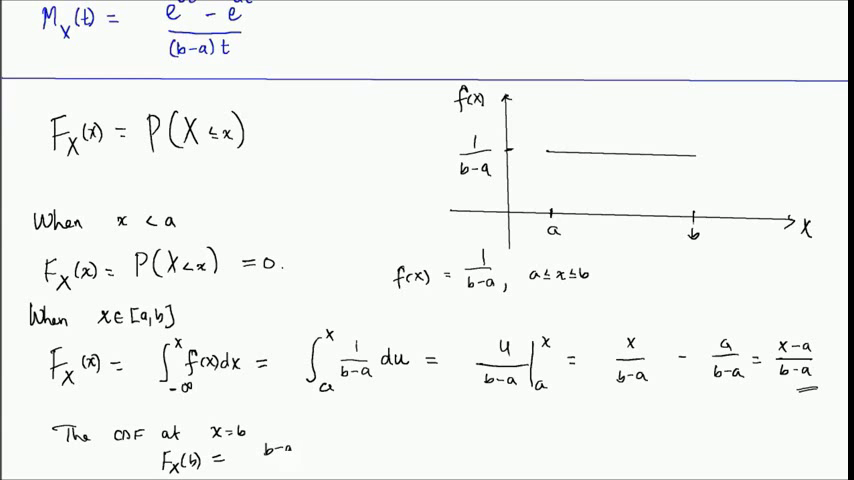 M_X(t) = (e^{bt} - e^{at}) / ((b-a)t)
F_X(x) = P(X ≤ x)
f(x)
1/(b-a)
a b X
When x < a
F_X(x) = P(X < x) = 0.
f(x) = 1/(b-a), a ≤ x ≤ b
When x ∈ [a,b]
F_X(x) = ∫_{-∞}^{x} f(x)dx = ∫_a^x 1/(b-a) du = u/(b-a) |_a^x = x/(b-a) - a/(b-a) = (x-a)/(b-a)
The CDF at x=b
F_X(b) = b-a